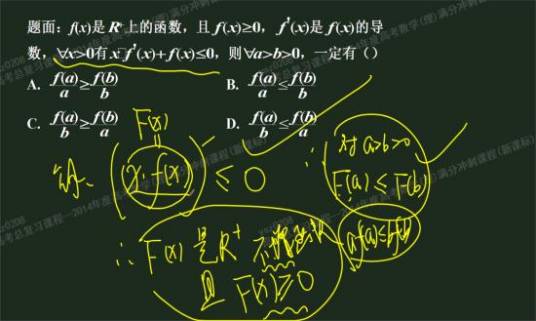 题面：f(x)是R⁺上的函数，且f(x)≥0，f'(x)是f(x)的导
数，∀x>0有x·f'(x)+f(x)≤0，则∀a>b>0，一定有（）
A. f(a)/a ≥ f(b)/b
B. f(a)/a ≤ f(b)/b
C. f(a)/b ≥ f(b)/a
D. f(a)/b ≤ f(b)/a
F(x)
(x·f(x))' ≤ 0
∴ F(x)是R⁺
且 F(x)≥0
∴ 对a>b>0
F(a)≤F(b)
af(a)≤bf(b)